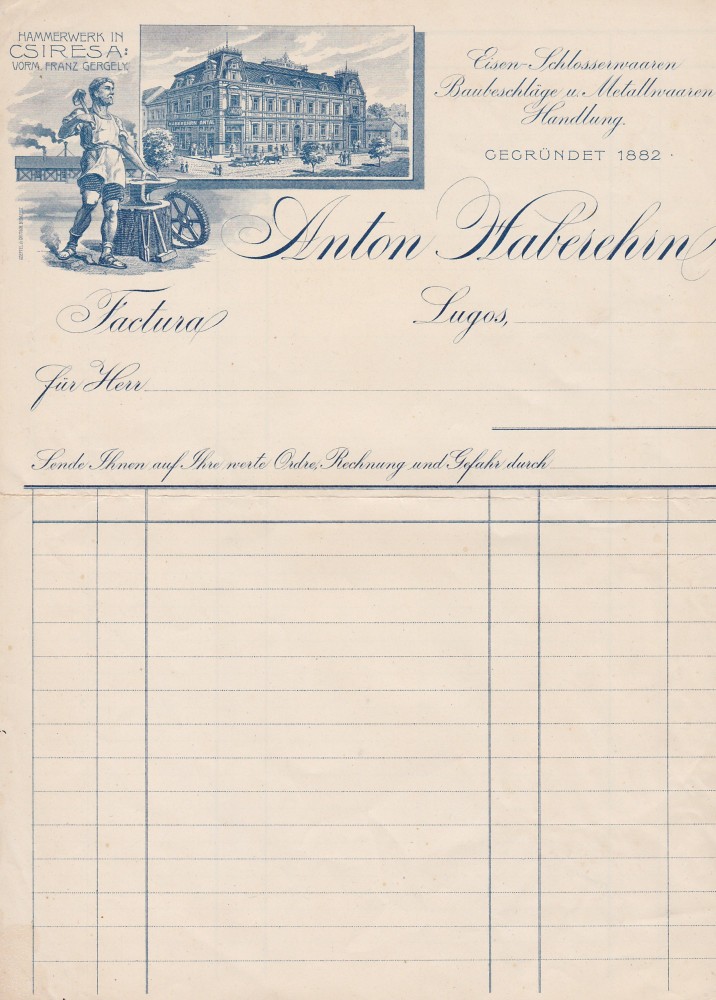 HAMMERWERK IN
CSIRESA:
VORM. FRANZ GERGELY.
Eisen-Schlosserwaaren
Baubeschläge u. Metallwaaren
Handlung.
GEGRÜNDET 1882.
Anton Haberehrn
Factura
Lugos,
für Herr
Sende Ihnen auf Ihre werte Ordre, Rechnung und Gefahr durch